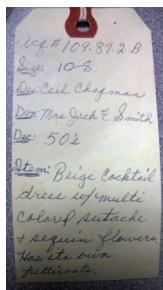 Acq.# 109.87.2 B
Size: 10-8
Des: Ceil Chapman
Don: Mrs. Jack E. Smith
Dec: 50's
Item: Beige Cocktail
dress w/ multi
colored sutache
+ sequin flowers.
Has its own
petticoats.